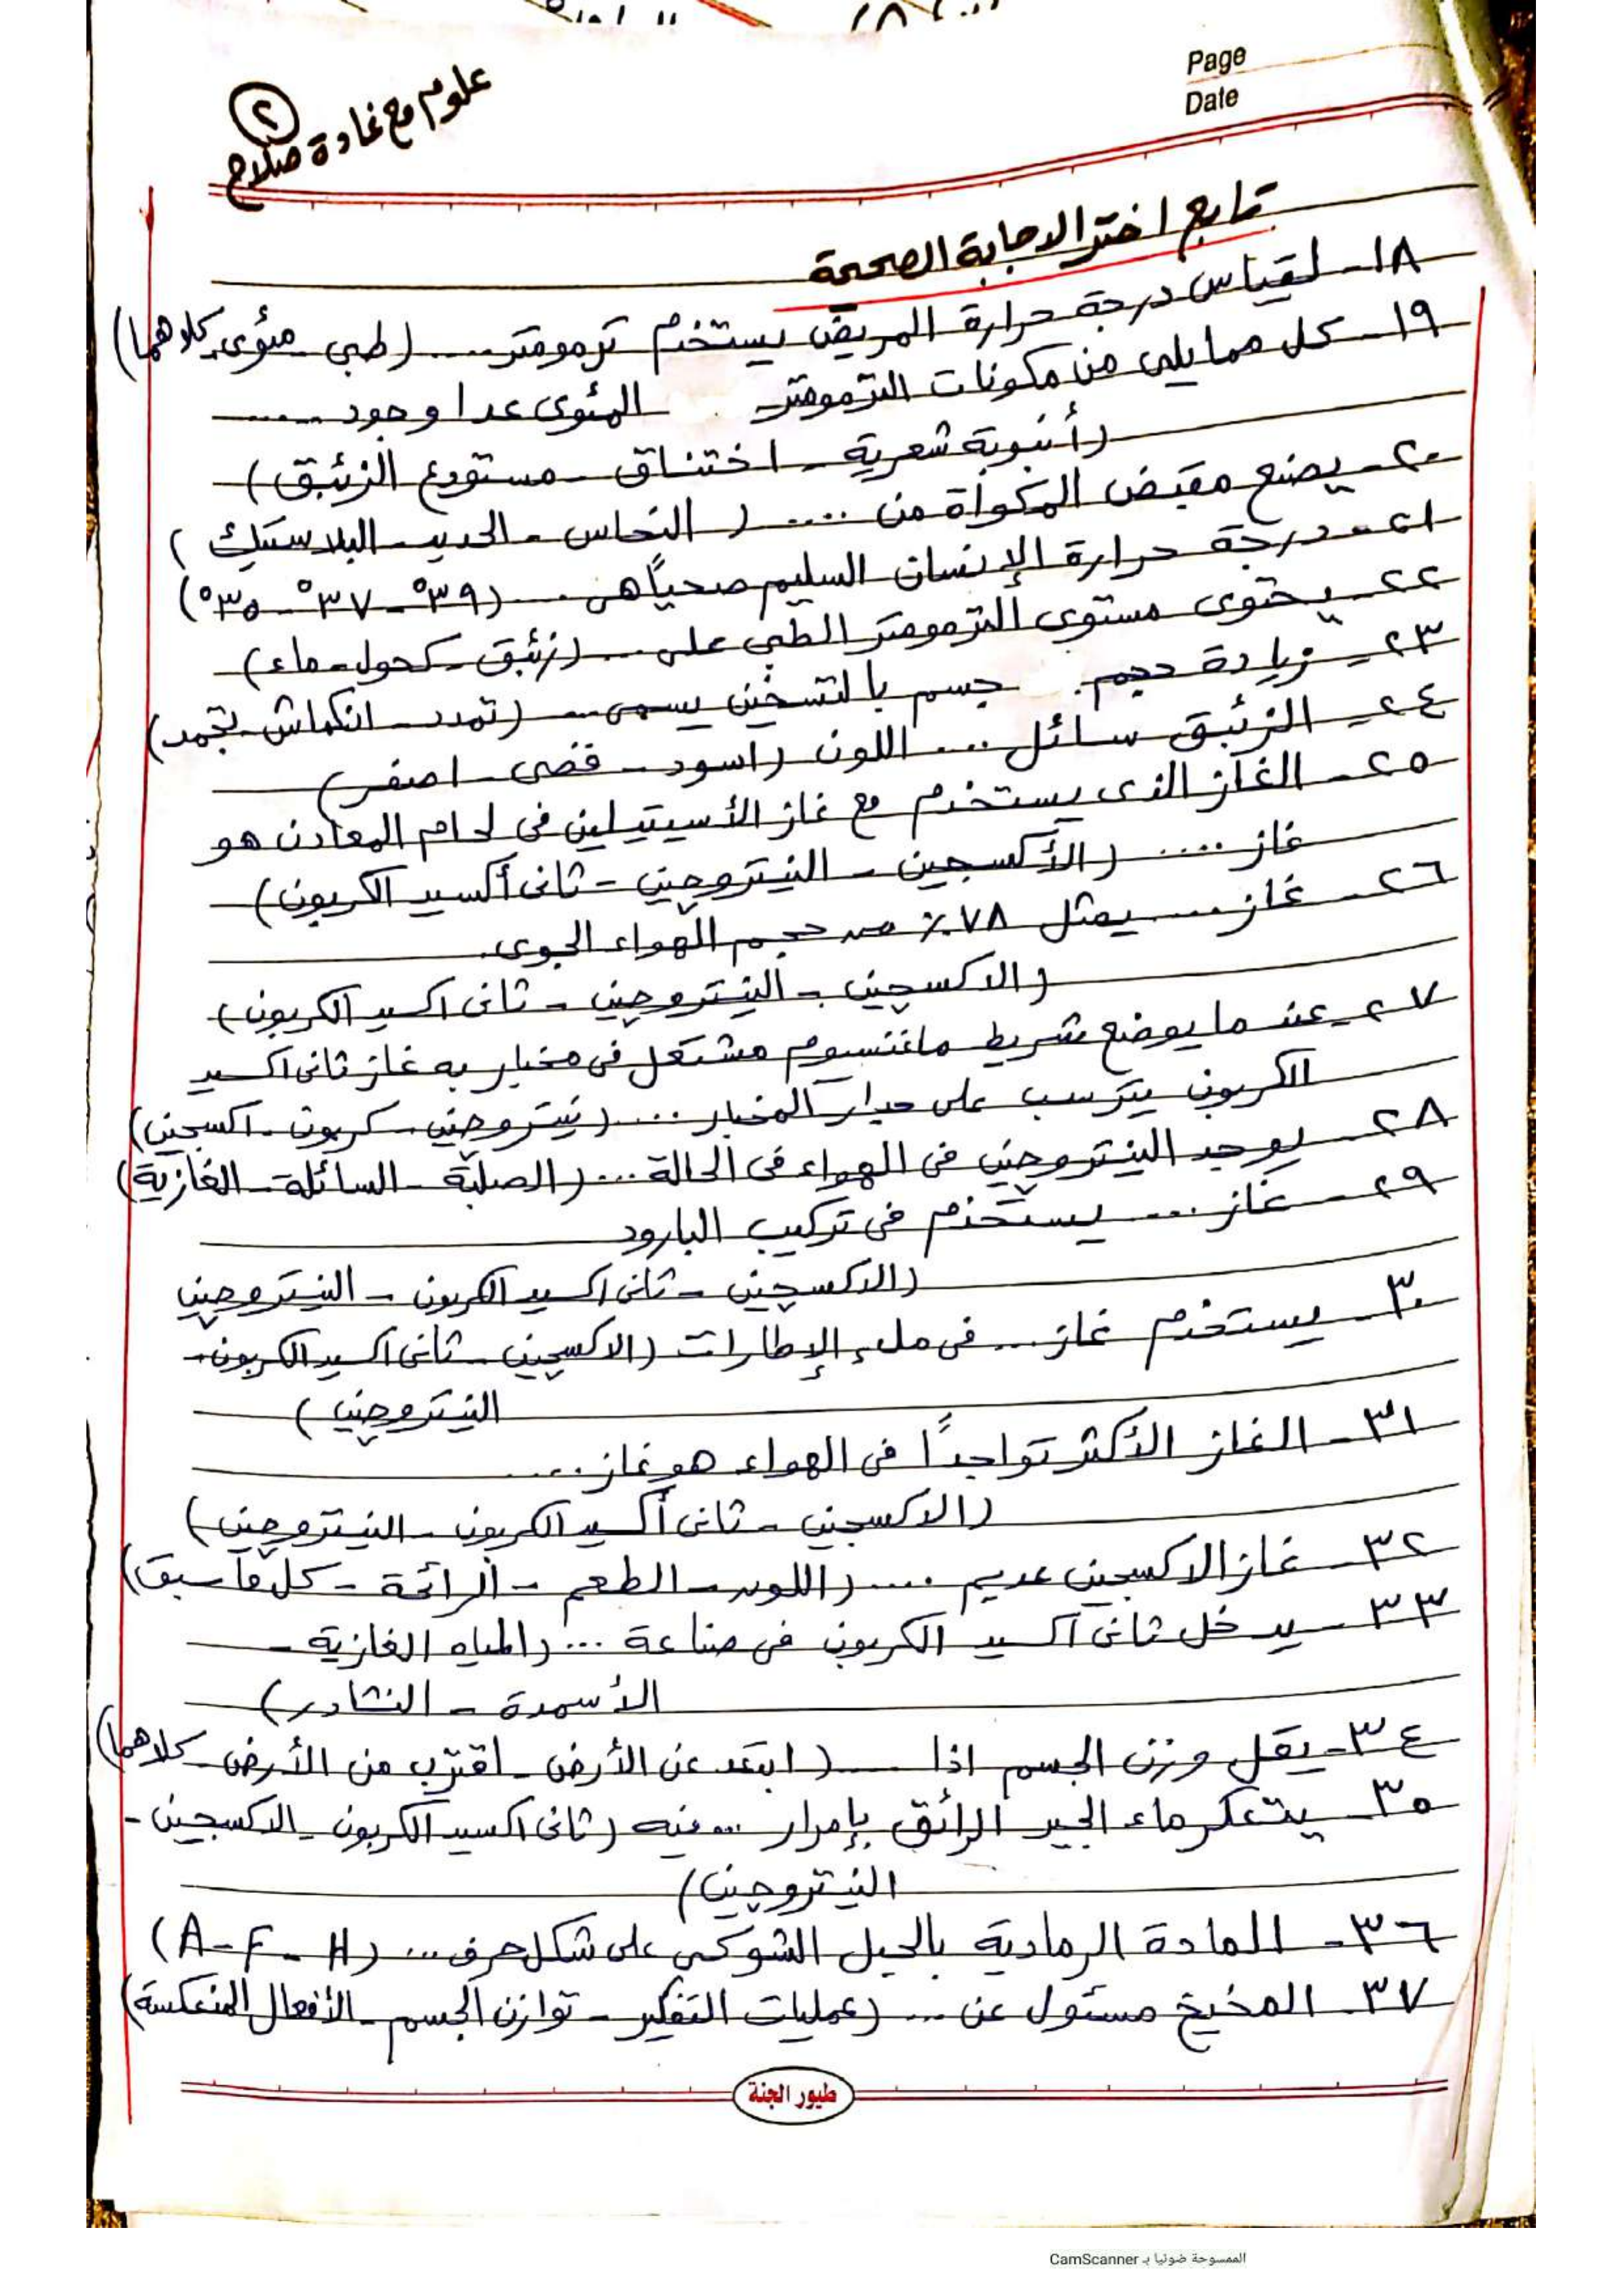 Page
Date
علوم مع غادة صلاح
٢
تابع اختر الاجابة الصحيحة
١٨- لقياس درجة حرارة المريض يستخدم ترمومتر ..... (طبى - مئوى - كلاهما)
١٩- كل مما يلى من مكونات الترمومتر المئوى عدا وجود ......
(أنبوبة شعرية - اختناق - مستودع الزئبق)
٢٠- يصنع مقبض المكواة من ..... (النحاس - الحديد - البلاستيك)
٢١- درجة حرارة الإنسان السليم صحياً هى .... (٣٩° - ٣٧° - ٣٥°)
٢٢- يحتوى مستوى الترمومتر الطبى على .... (زئبق - كحول - ماء)
٢٣- زيادة حجم جسم بالتسخين يسمى .... (تمدد - انكماش - تجمد)
٢٤- الزئبق سائل .... اللون (اسود - فضى - اصفر)
٢٥- الغاز الذى يستخدم مع غاز الأسيتيلين فى لحام المعادن هو
غاز ..... (الأكسجين - النيتروجين - ثانى أكسيد الكربون)
٢٦- غاز .... يمثل ٧٨٪ من حجم الهواء الجوى.
(الاكسجين - النيتروجين - ثانى اكسيد الكربون)
٢٧- عند ما يوضع شريط ماغنسيوم مشتعل فى مخبار به غاز ثانى اكسيد
الكربون يترسب على جدار المخبار .... (نيتروجين - كربون - اكسجين)
٢٨- يوجد النيتروجين فى الهواء فى الحالة ... (الصلبة - السائلة - الغازية)
٢٩- غاز .... يستخدم فى تركيب البارود
(الاكسجين - ثانى اكسيد الكربون - النيتروجين
٣٠- يستخدم غاز ... فى ملء الإطارات (الاكسجين - ثانى اكسيد الكربون -
النيتروجين)
٣١- الغاز الأكثر تواجداً فى الهواء هو غاز .....
(الاكسجين - ثانى أكسيد الكربون - النيتروجين)
٣٢- غاز الاكسجين عديم .... (اللون - الطعم - الرائحة - كل ما سبق)
٣٣- يدخل ثانى اكسيد الكربون فى صناعة ... (المياه الغازية -
الأسمدة - النشادر)
٣٤- يقل وزن الجسم اذا ..... (ابتعد عن الأرض - اقترب من الأرض - كلاهما)
٣٥- يتعكر ماء الجير الرائق بإمرار .... فيه (ثانى اكسيد الكربون - الاكسجين -
النيتروجين)
٣٦- المادة الرمادية بالحبل الشوكى على شكل حرف ... (A - F - H)
٣٧- المخيخ مسئول عن .... (عمليات التفكير - توازن الجسم - الأفعال المنعكسة)
طيور الجنة
الممسوحة ضوئيا بـ CamScanner